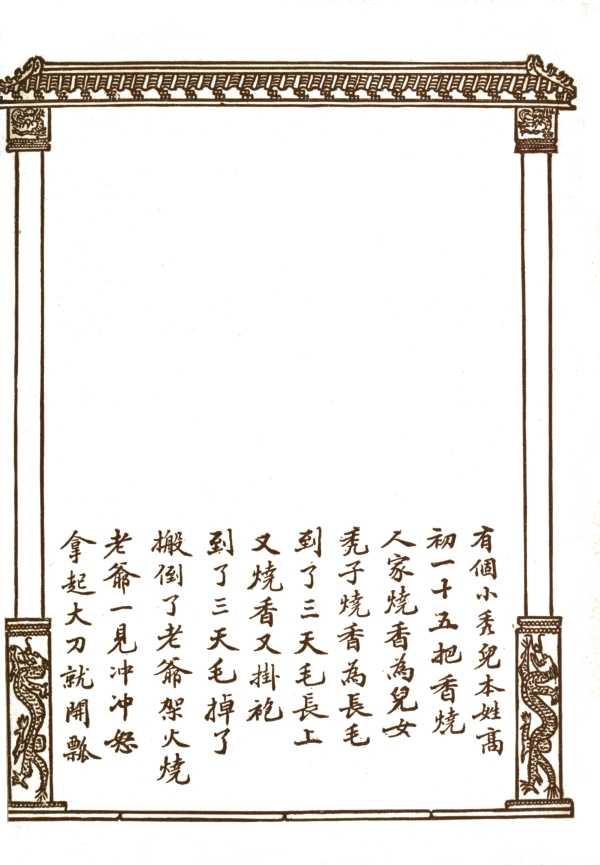 有個小秃兒本姓高
初一十五把香燒
人家燒香為兒女
秃子燒香為長毛
到了三天毛長上
又燒香又掛袍
到了三天毛掉了
搬倒了老爺架火燒
老爺一見冲冲怒
拿起大刀就開瓢